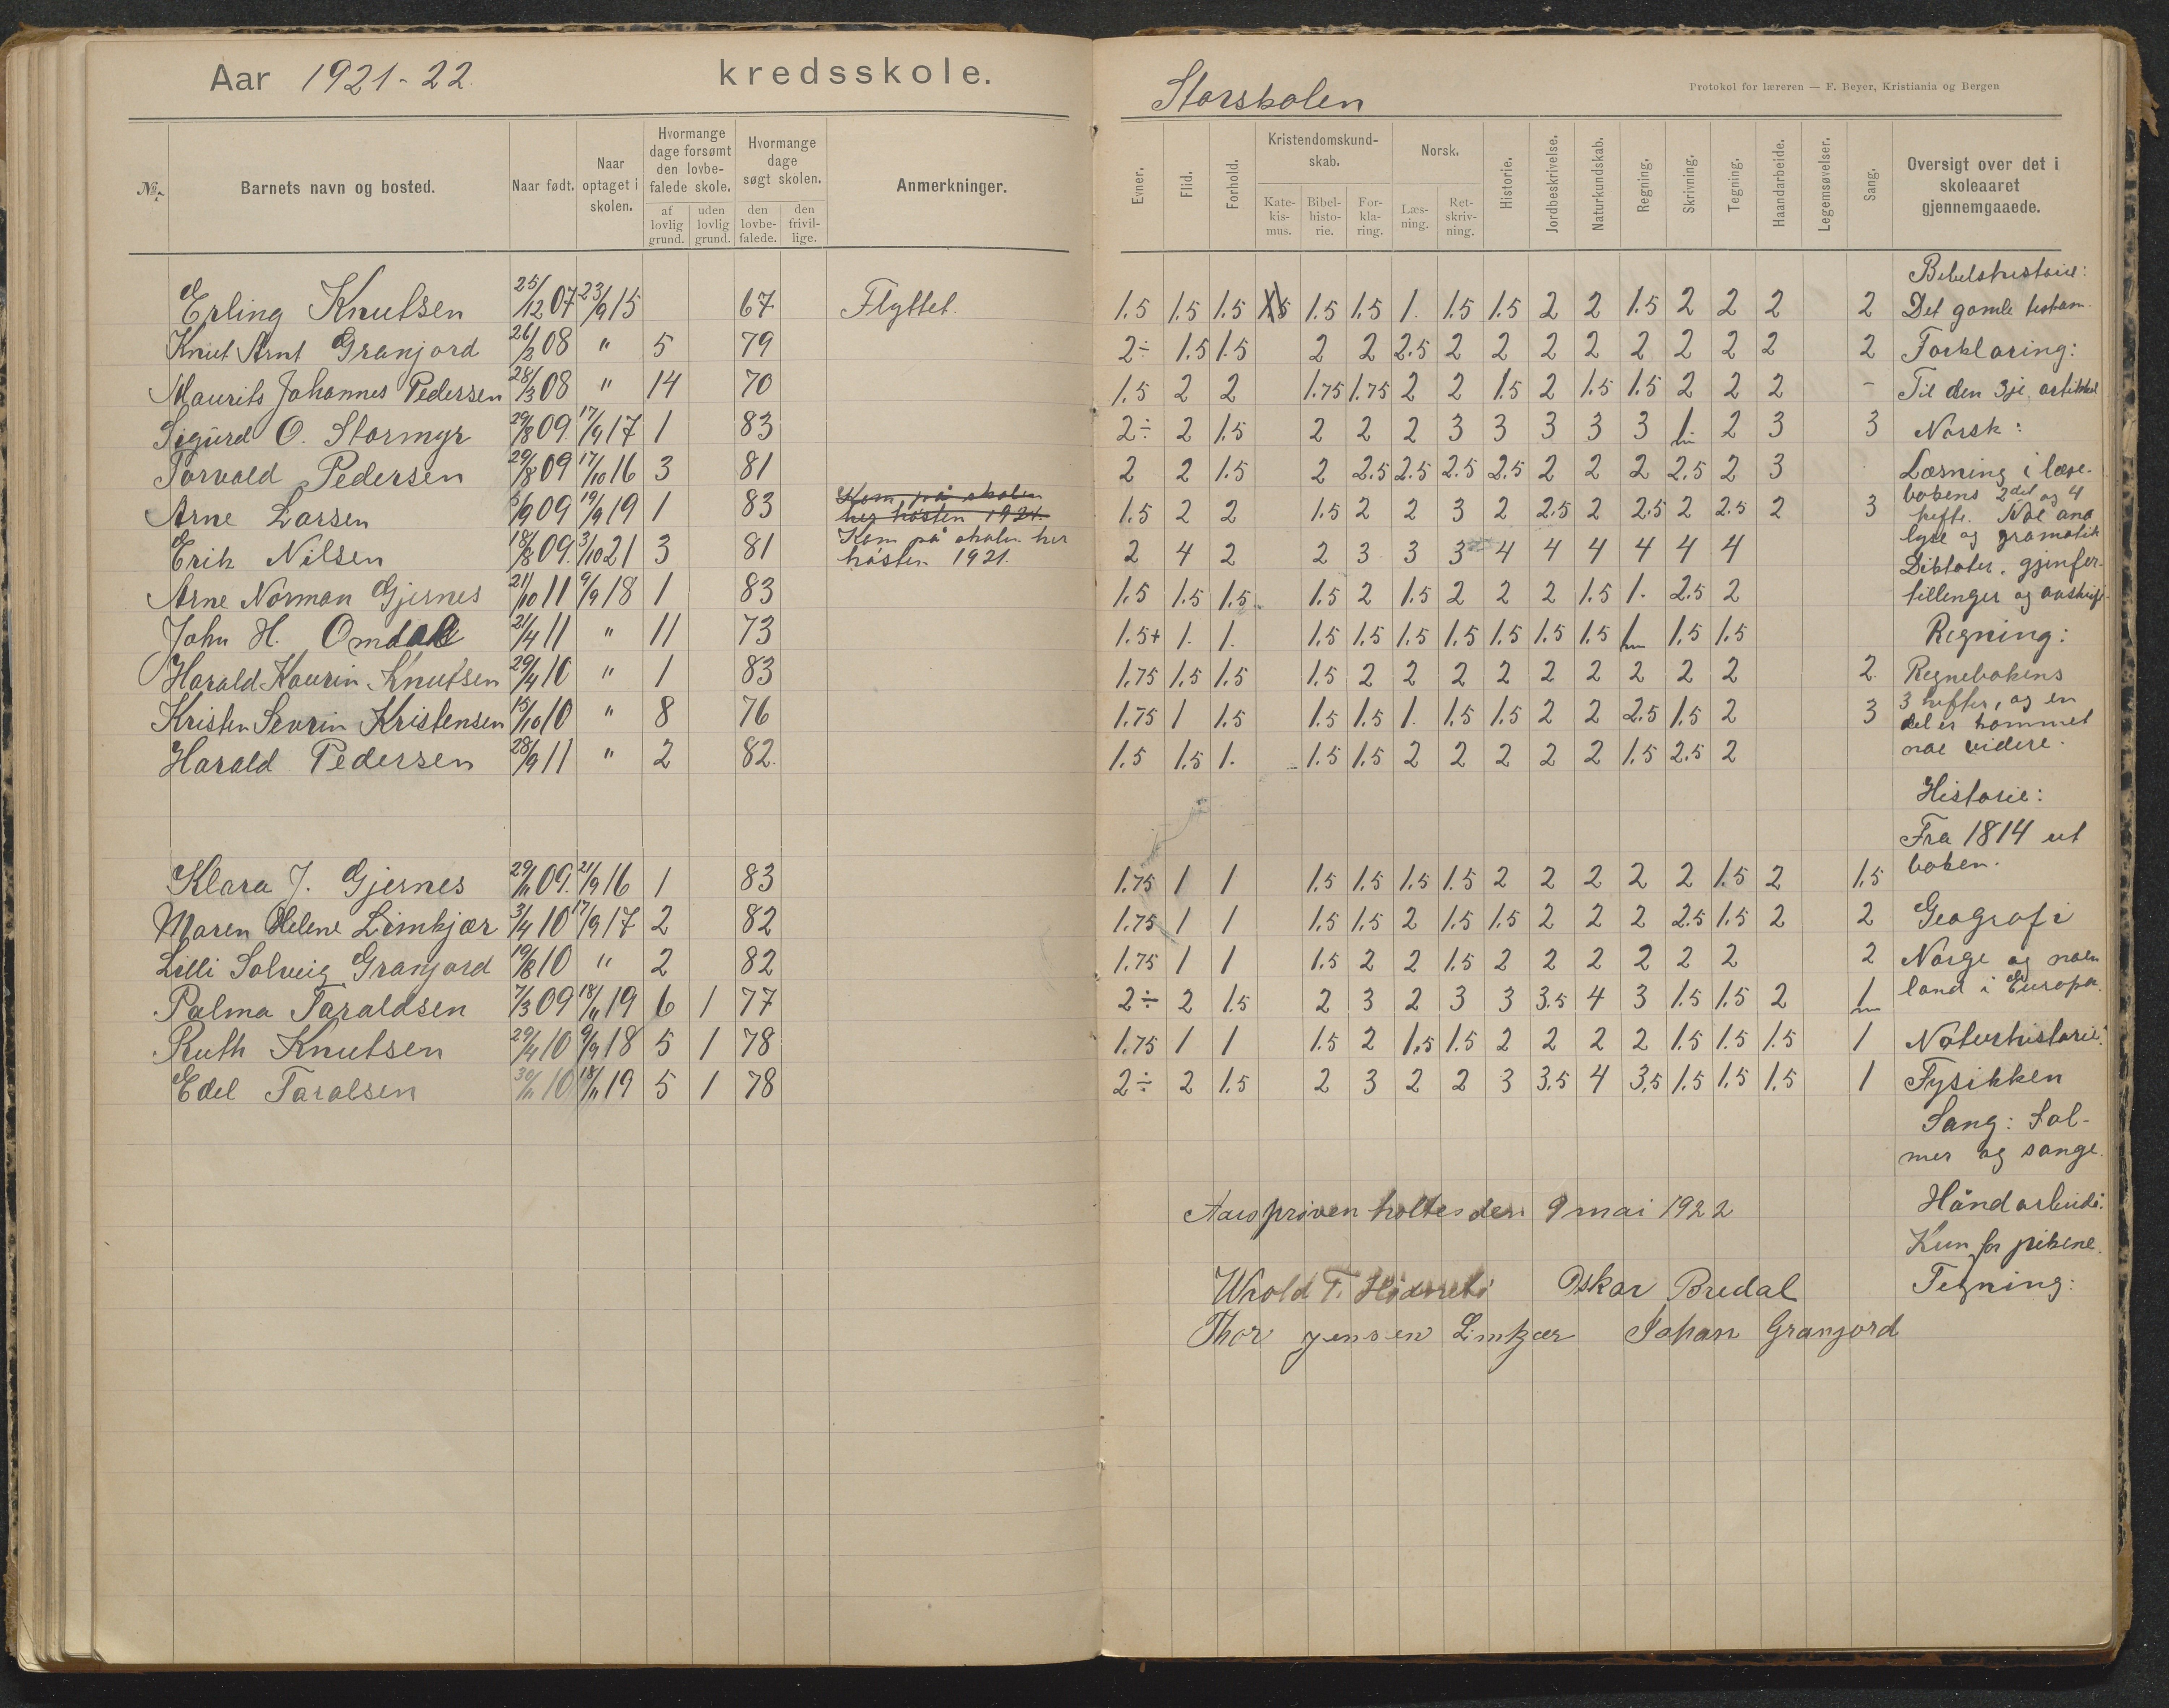 Aar 1921-22. kredsskole.
No. Barnets navn og bosted. Naar født. Naar optaget i skolen. Hvormange dage forsømt den lovbefalede skole. af lovlig grund. uden lovlig grund. Hvormange dage søgt skolen. den lovbefalede. den frivillige. Anmerkninger.
Erling Knutsen 25/12 07 23/9 15 67 Flyttet.
Knut Arnt Granjord 26/3 08 " 5 79
Maurits Johannes Pedersen 28/3 08 " 14 70
Sigurd O. Stormyr 29/8 09. 17/9 17 1 83
Torvald Pedersen 29/8 09 17/10 16 3 81
Arne Larsen 5/9 09 19/9 19 1 83 Kom på skolen her høsten 1921.
Erik Nilsen 18/8 09. 3/10 21 3 81 Kom på skolen her høsten 1921.
Arne Norman Gjernes 21/10 11 9/9 18 1 83
John H. Omdal 21/4 11 " 11 73
Harald Kaurin Knutsen 29/4 10 " 1 83
Kristen Sevrin Kristensen 15/10 10 " 8 76
Harald Pedersen 28/9 11 " 2 82.
Klara J. Gjernes 29/11 09. 21/9 16 1 83
Maren Helene Limkjær 3/4 10 17/9 17 2 82
Lilli Solveig Granjord 19/8 10 " 2 82
Palma Taraldsen 7/3 09 18/11 19 6 1 77
Ruth Knutsen 29/4 10 9/9 18 5 1 78
Edel Taralsen 30/11 10 18/11 19 5 1 78
Storskolen
Protokol for læreren — F. Beyer, Kristiania og Bergen
Evner. Flid. Forhold. Kristendomskundskab. Katekismus. Bibelhistorie. Forklaring. Norsk. Læsning. Retskrivning. Historie. Jordbeskrivelse. Naturkundskab. Regning. Skrivning. Tegning. Haandarbeide. Legemsøvelser. Sang. Oversigt over det i skoleaaret gjennemgaaede.
1.5 1.5 1.5 1.5 1.5 1.5 1. 1.5 1.5 2 2 1.5 2 2 2 2
2÷ 1.5 1.5 2 2 2.5 2 2 2 2 2 2 2 2 2
1.5 2 2 1.75 1.75 2 2 1.5 2 1.5 1.5 2 2 2 -
2÷ 2 1.5 2 2 2 3 3 3 3 3 1 2 3 3
2 2 1.5 2 2.5 2.5 2.5 2.5 2 2 2 2.5 2 3
1.5 2 2 1.5 2 2 3 2 2.5 2 2.5 2 2.5 2 3
2 4 2 2 3 3 3 4 4 4 4 4 4
1.5 1.5 1.5 1.5 2 1.5 2 2 2 1.5 1. 2.5 2
1.5+ 1. 1. 1.5 1.5 1.5 1.5 1.5 1.5 1.5 1 1.5 1.5
1.75 1.5 1.5 1.5 2 2 2 2 2 2 2 2 2 2.
1.75 1 1.5 1.5 1.5 1. 1.5 1.5 2 2 2.5 1.5 2 3
1.5 1.5 1. 1.5 1.5 2 2 2 2 2 1.5 2.5 2
1.75 1 1 1.5 1.5 1.5 1.5 2 2 2 2 2 1.5 2 1.5
1.75 1 1 1.5 1.5 2 1.5 1.5 2 2 2 2.5 1.5 2 2
1.75 1 1 1.5 2 2 1.5 2 2 2 2 2 2 2
2÷ 2 1.5 2 3 2 3 3 3.5 4 3 1.5 1.5 2 1
1.75 1 1 1.5 2 1.5 1.5 2 2 2 2 1.5 1.5 1.5 1
2÷ 2 1.5 2 3 2 2 3 3.5 4 3.5 1.5 1.5 1.5 1
Bibelshistorie:
Det gamle testam.
Forklaring:
Til den 3je artikkel
Norsk:
Læsning i læse-
bokens 2det og 4
hefte. Noe ana
lyse og gramatik
Diktater, gjenfor-
tillinger og
Regning:
Regnebokens
3 hefter, og en
del er kommet
noe videre.
Historie:
Fra 1814 ut
boken.
Geografi
Norge og noen
land i Europa.
Naturhistorie:
Fysikken
Sang: Sal-
mer og sange.
Håndarbeide:
Kun for pikene.
Tegning:
Aarsprøven holtes den 9 mai 1922
T. Oskar Bredal
Thor Jensen Limkjær Johan Granjord